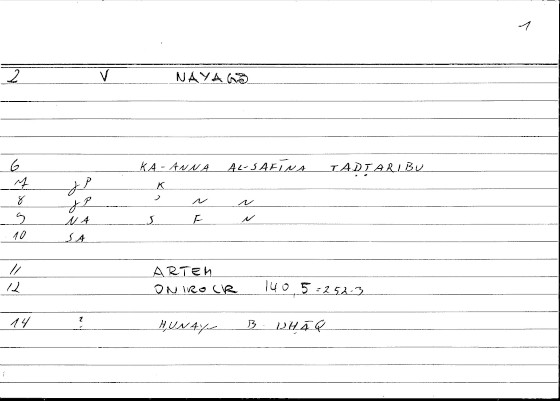 1
2 V NAYAGŌ
6 KA-ANNA AL-SAFĪNA TAḌṬARIBU
7 JP K
8 JP ʾ N N
9 NA S F N
10 SA
11 ARTEM
12 ONIROCR 140,5=252.3
14 : ḤUNAYN B ISḤĀQ